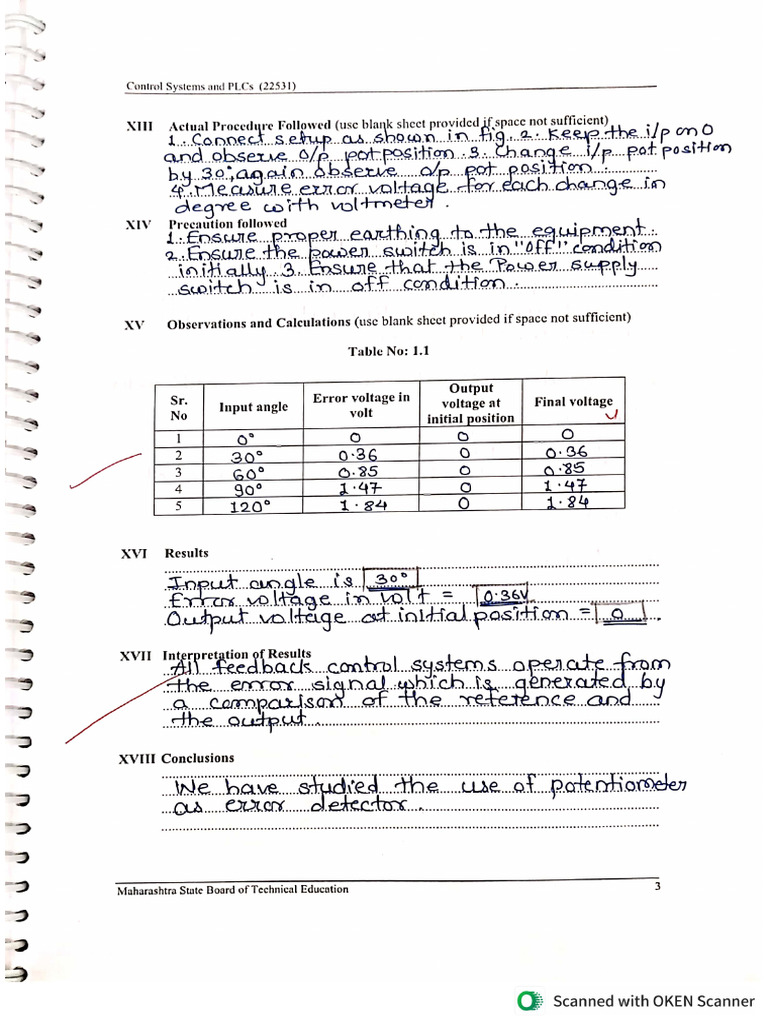 Control Systems and PLCs (22531)
XIII Actual Procedure Followed (use blank sheet provided if space not sufficient)
1. Connect setup as shown in fig. 2. Keep the i/p on 0
and observe o/p pot position. 3. Change i/p pot position
by 30°, again observe o/p pot position.
4. Measure error voltage for each change in
degree with voltmeter.
XIV Precaution followed
1. Ensure proper earthing to the equipment.
2. Ensure the power switch is in "off" condition
initially 3. Ensure that the Power supply
switch is in off condition.
XV Observations and Calculations (use blank sheet provided if space not sufficient)
Table No: 1.1
Sr. No Input angle Error voltage in volt Output voltage at initial position Final voltage
1 0° 0 0 0
2 30° 0.36 0 0.36
3 60° 0.85 0 0.85
4 90° 1.47 0 1.47
5 120° 1.84 0 1.84
XVI Results
Input angle is 30°
Error voltage in volt = 0.36V
Output voltage at initial position = 0
XVII Interpretation of Results
All feedback control systems operate from
the error signal which is generated by
a comparison of the reference and
the output.
XVIII Conclusions
We have studied the use of potentiometer
as error detector.
Maharashtra State Board of Technical Education 3
Scanned with OKEN Scanner